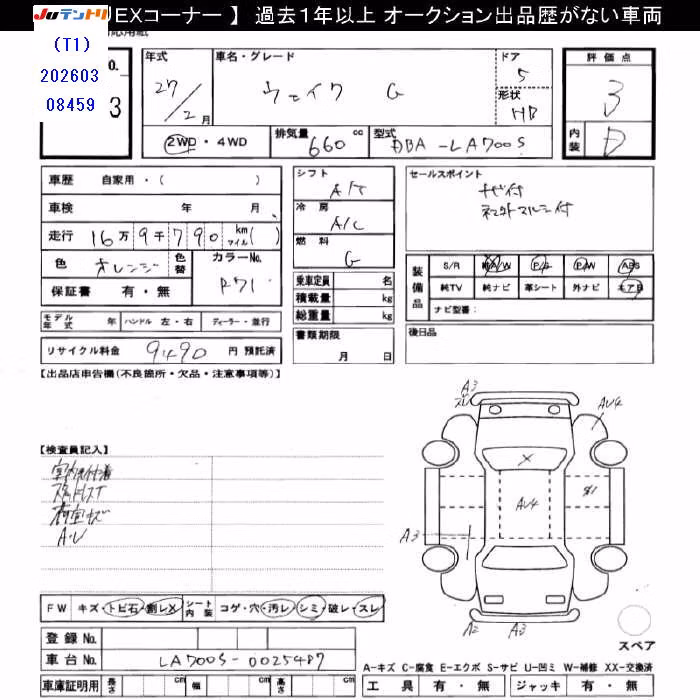 EXコーナー 】 過去1年以上 オークション出品歴がない車両
Juテントリ
(T1)
202603
08459
No.
3
年式 27/2月
車名・グレード ウェイク G
ドア 5
形状 HB
評価点 3
内装 D
2WD・4WD
排気量 660 cc
型式 DBA-LA700S
車歴 自家用・( )
車検 年 月
走行 16万9千790 km マイル( )
色 オレンジ 色替
カラーNo. R71
保証書 有・無
シフト A/T
冷房 A/C
燃料 G
乗車定員 名
積載量 kg
総重量 kg
セールスポイント
ナビ付
装備品
S/R 純A/W P/S P/W ABS
純TV 純ナビ 革シート 外ナビ エアB
ナビ型番:
モデル年式 年 ハンドル 左・右 ディーラー・並行
書類期限 月 日
後日品
リサイクル料金 9490 円 預託済
【出品店申告欄(不良箇所・欠品・注意事項等)】
【検査員記入】
荷室キズ
A3
AU4
X
AU4
S1
A3
A2 A3
FW キズ・トビ石・割レX
シート内装 コゲ・穴・汚レ・シミ・破レ・スレ
登録 No.
車台 No. LA700S-0025487
車庫証明用 長さ cm 幅 cm 高さ cm
スペア
A-キズ C-腐食 E-エクボ S-サビ U-凹ミ W-補修 XX-交換済
工具 有・無 ジャッキ 有・無